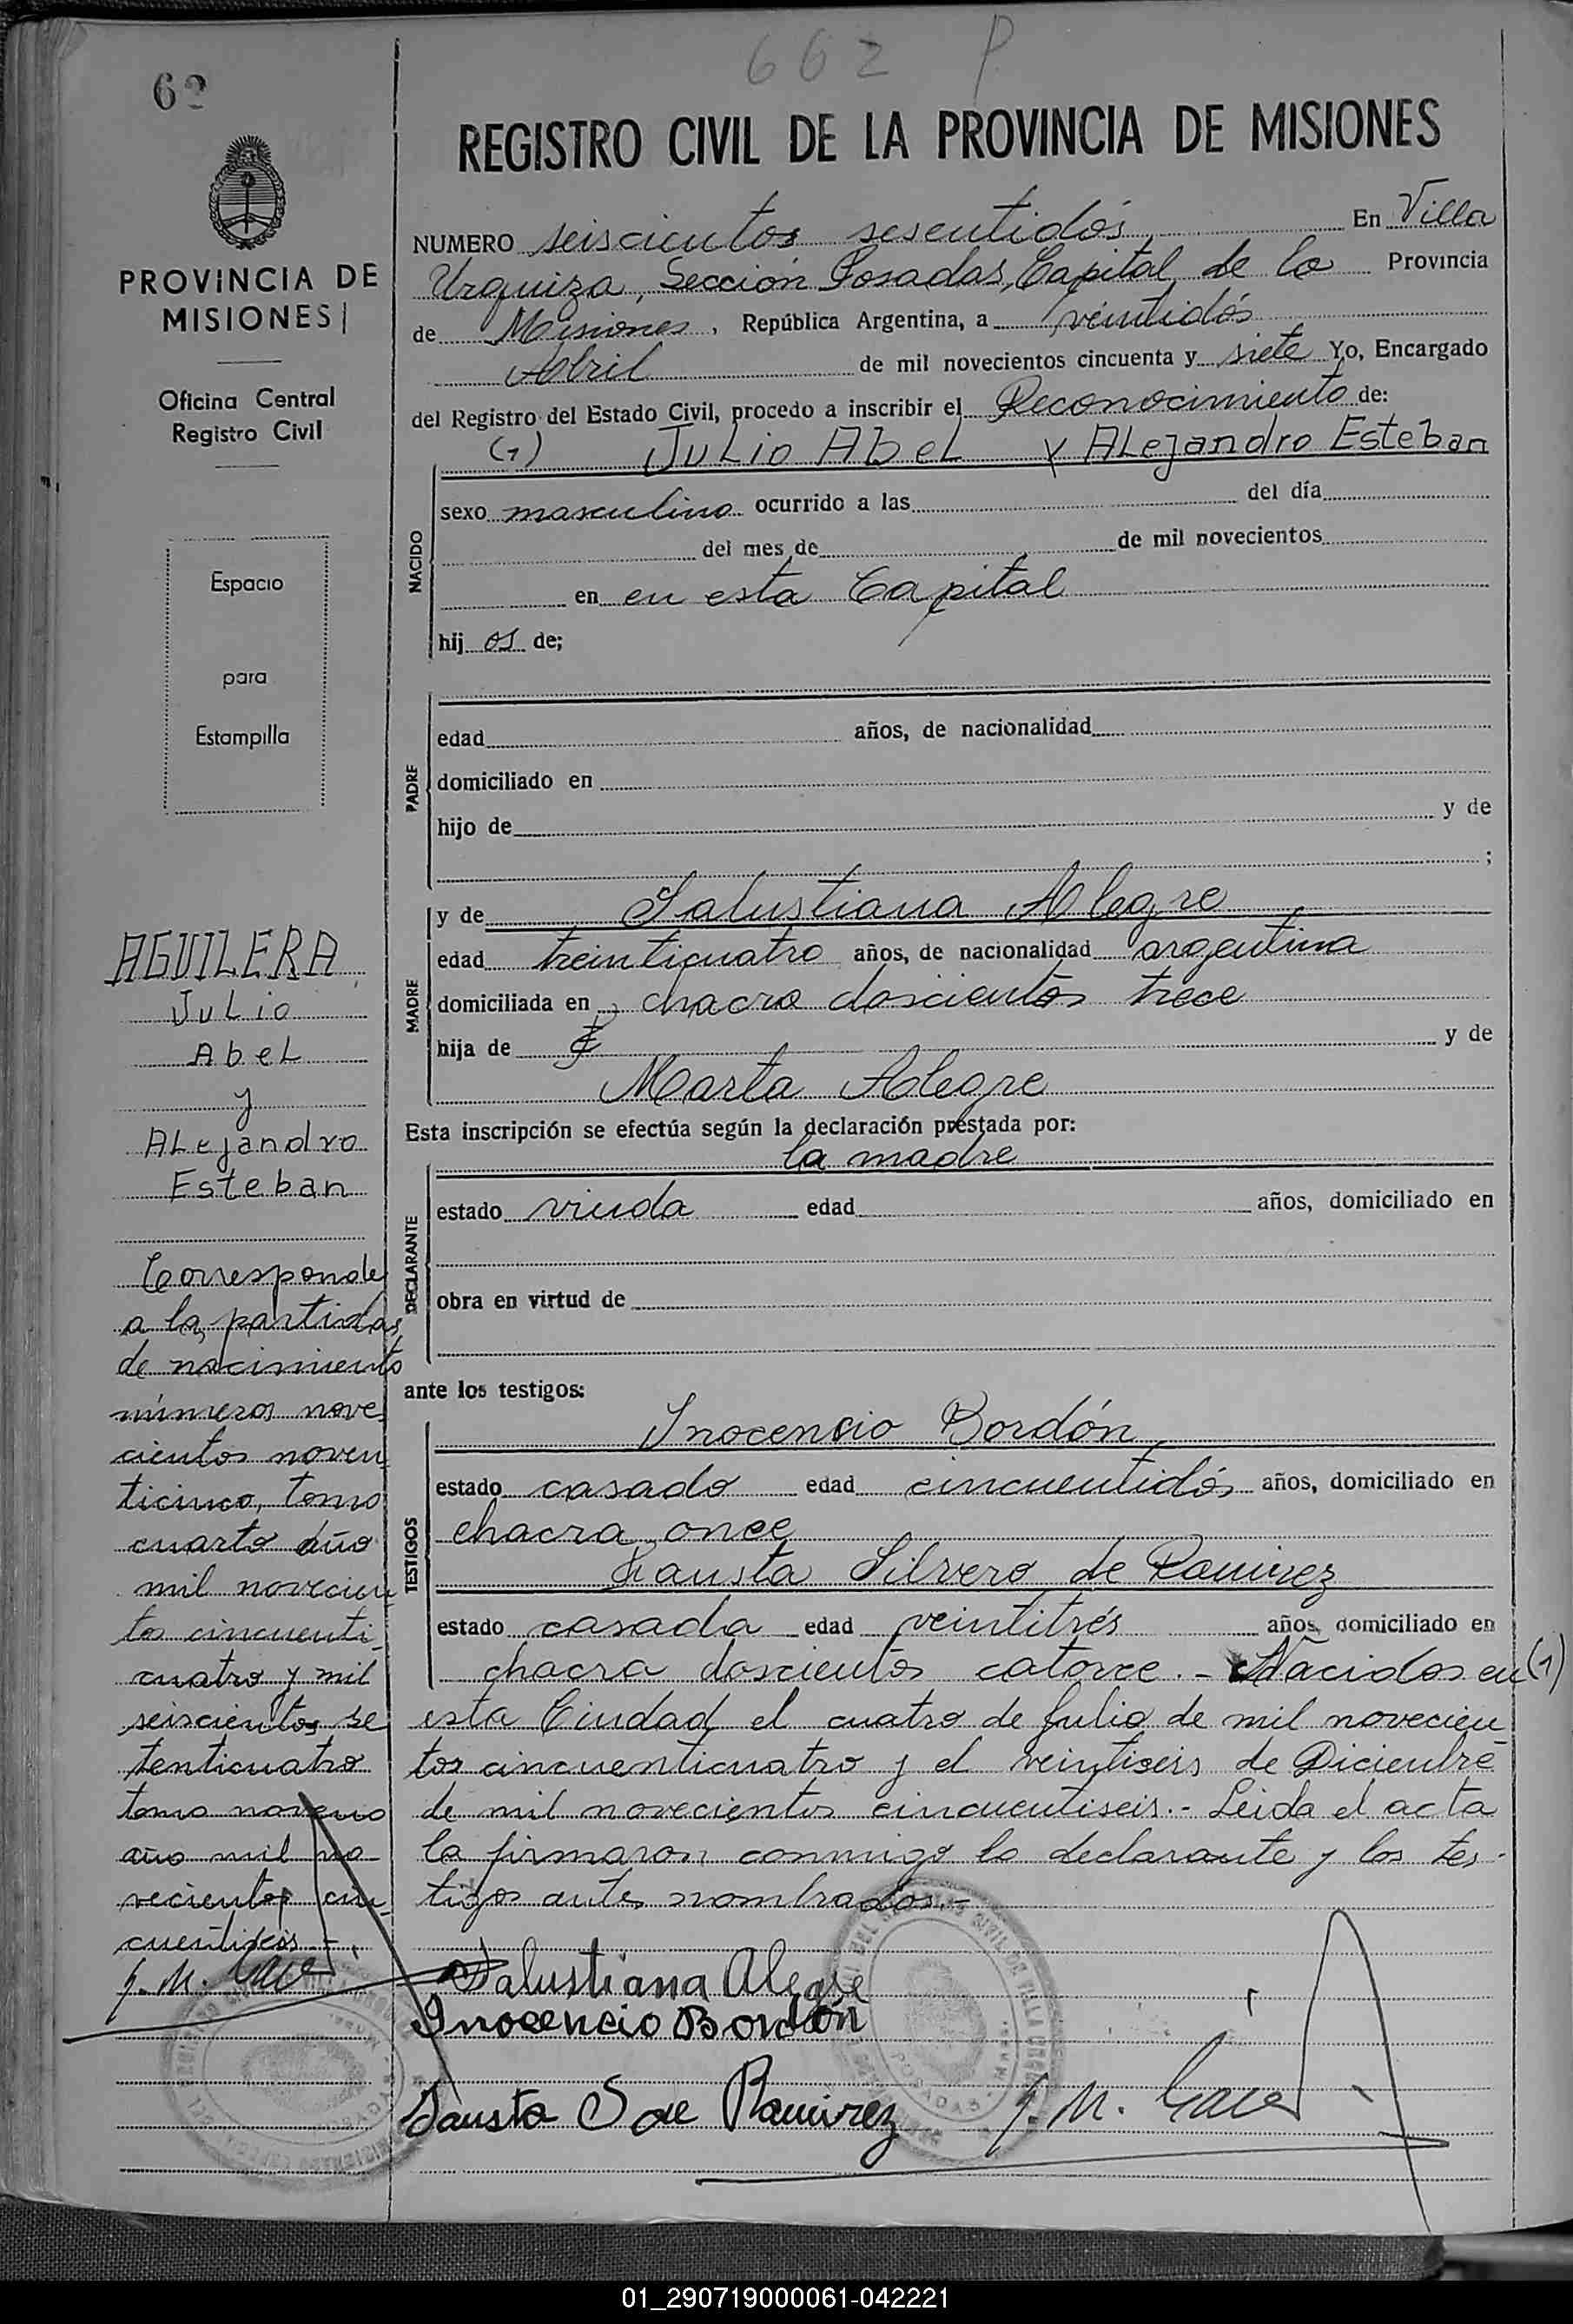 662 P
62
REGISTRO CIVIL DE LA PROVINCIA DE MISIONES
PROVINCIA DE
MISIONES
Oficina Central
Registro Civil
Espacio
para
Estampilla
NUMERO seiscientos sesentidós En Villa
Urquiza, Sección Posadas, Capital de la Provincia
de Misiones, República Argentina, a veintidós
Abril de mil novecientos cincuenta y siete Yo, Encargado
del Registro del Estado Civil, procedo a inscribir el Reconocimiento de:
(1) Julio Abel y Alejandro Esteban
NACIDO
sexo masculino ocurrido a las del día
del mes de de mil novecientos
en en esta Capital
hij os de;
PADRE
edad años, de nacionalidad
domiciliado en
hijo de y de
;
MADRE
y de Salustiana Alegre
edad treinticuatro años, de nacionalidad argentina
domiciliada en chacra doscientos trece
hija de y de
Marta Alegre
Esta inscripción se efectúa según la declaración prestada por:
la madre
DECLARANTE
estado viuda edad años, domiciliado en
obra en virtud de
ante los testigos:
TESTIGOS
Inocencio Bordón
estado casado edad cincuentidós años, domiciliado en
chacra once
Fausta Silvero de Ramirez
estado casada edad veintitrés años, domiciliado en
chacra doscientos catorce.- Nacidos en (1)
esta Ciudad el cuatro de Julio de mil novecien
tos cincuenticuatro y el veintiseis de Diciembre
de mil novecientos cincuentiseis.- Leida el acta
la firmaron conmigo la declarante y los tes-
tigos antes nombrados.-
Salustiana Alegre
Inocencio Bordón
Fausta S de Ramirez
AGUILERA
Julio
Abel
y
Alejandro
Esteban
Corresponde
a las partidas
de nacimiento
números nove
cientos noven
ticinco, tomo
cuarto año
mil novecien
tos cincuenti
cuatro y mil
seiscientos se
tenticuatro
tomo noveno
año mil no
vecientos cin
cuentiseis.-
POSADAS
01_290719000061-042221